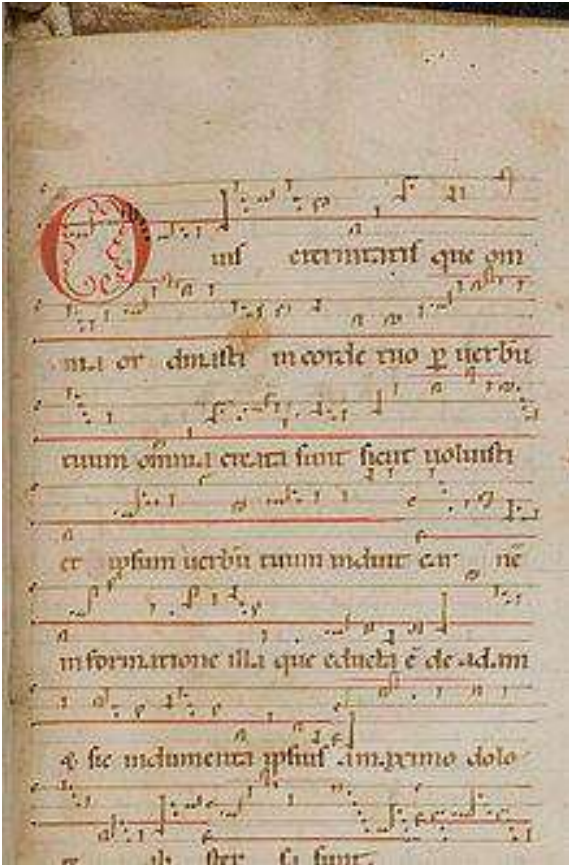 O uis eternitatis que om
nia or dinasti in corde tuo ꝑ uerbū
tuum omnia creata sunt sicut uoluisti
et ipsum uerbū tuum induit car nē
in formatione illa que educta ē de adam
& sic indumenta ipsius a maximo dolo